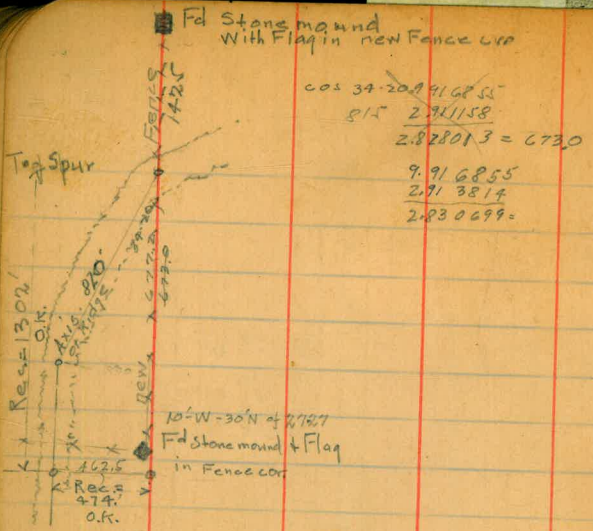 Fd Stone mound
With Flag in new Fence cor
cos 34-20 9.916855
815 2.911158
2.828013 = 673.0
9.916855
2.913814
2.830699=
Fence
1425
Top Spur
34-20
677.2
673.0
Axis 820
on Ridge
Rec=1302'
O.K.
new
10'-W-30'N of 2727
Fd Stone mound & Flag
in Fence cor.
462.5
Rec.=
474.'
O.K.